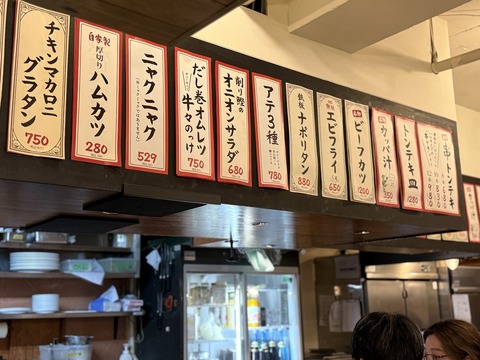 チキンマカロニ
グラタン
750
自家製
厚切り
ハムカツ
280
ニャクニャク
529
だし巻オムレツ
牛々のっけ
750
削り鰹の
オニオンサラダ
680
アテ3種
780
鉄板
ナポリタン
880
エビフライ
650
ビーフカツ
1200
カッパ汁
350
トンテキ皿
1280
串トンテキ